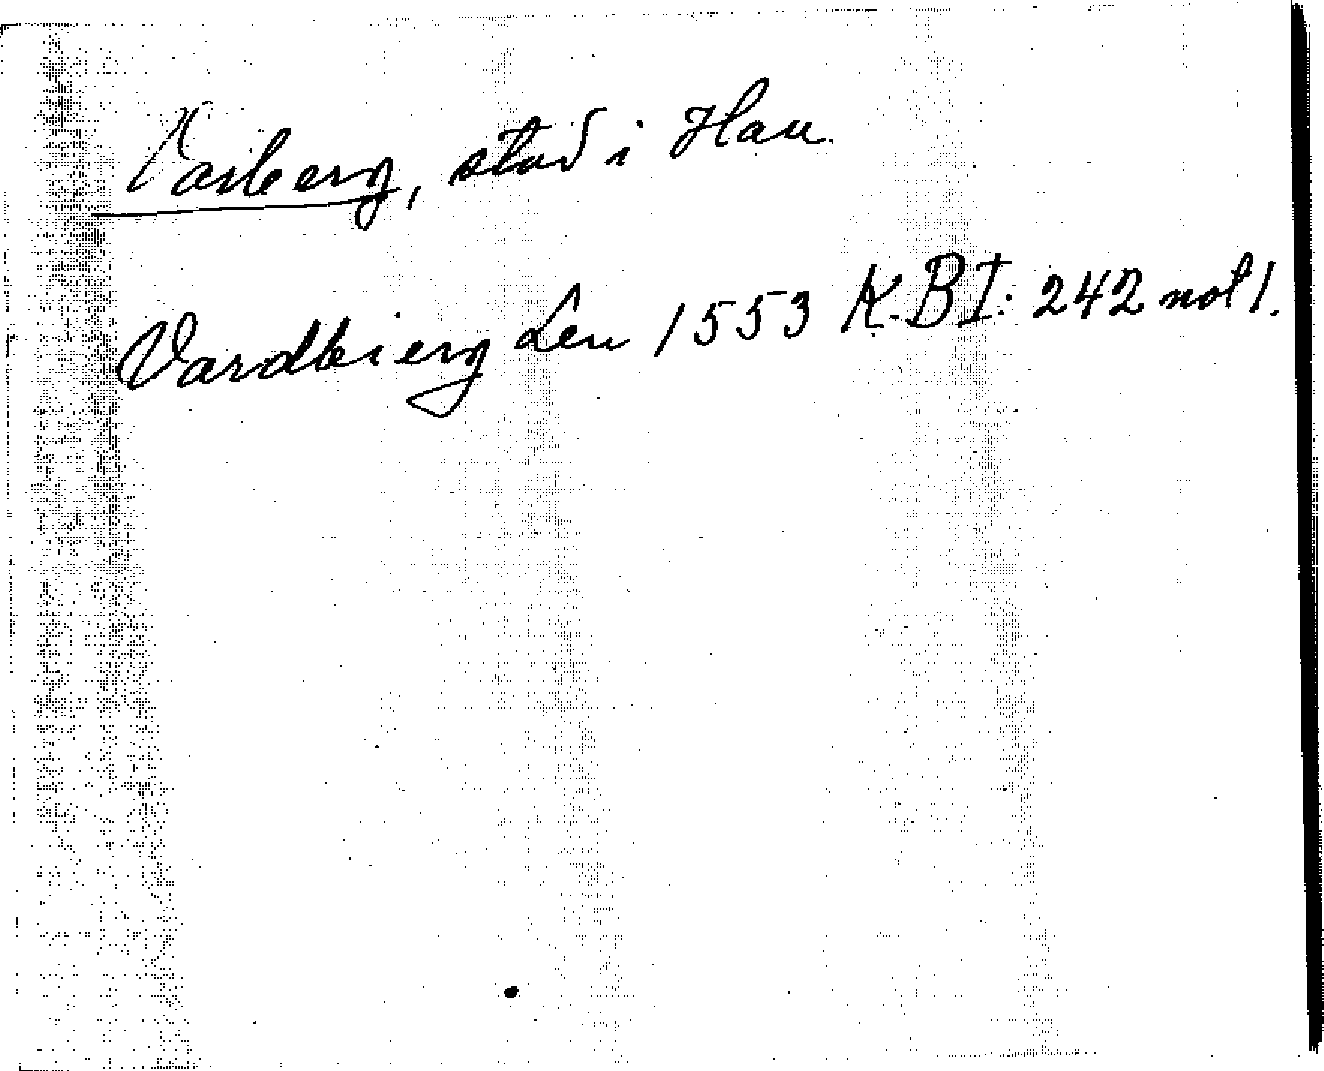 Varberg, stad i Hall.
Vardbierg Len 1553 K.B I: 242 not 1.